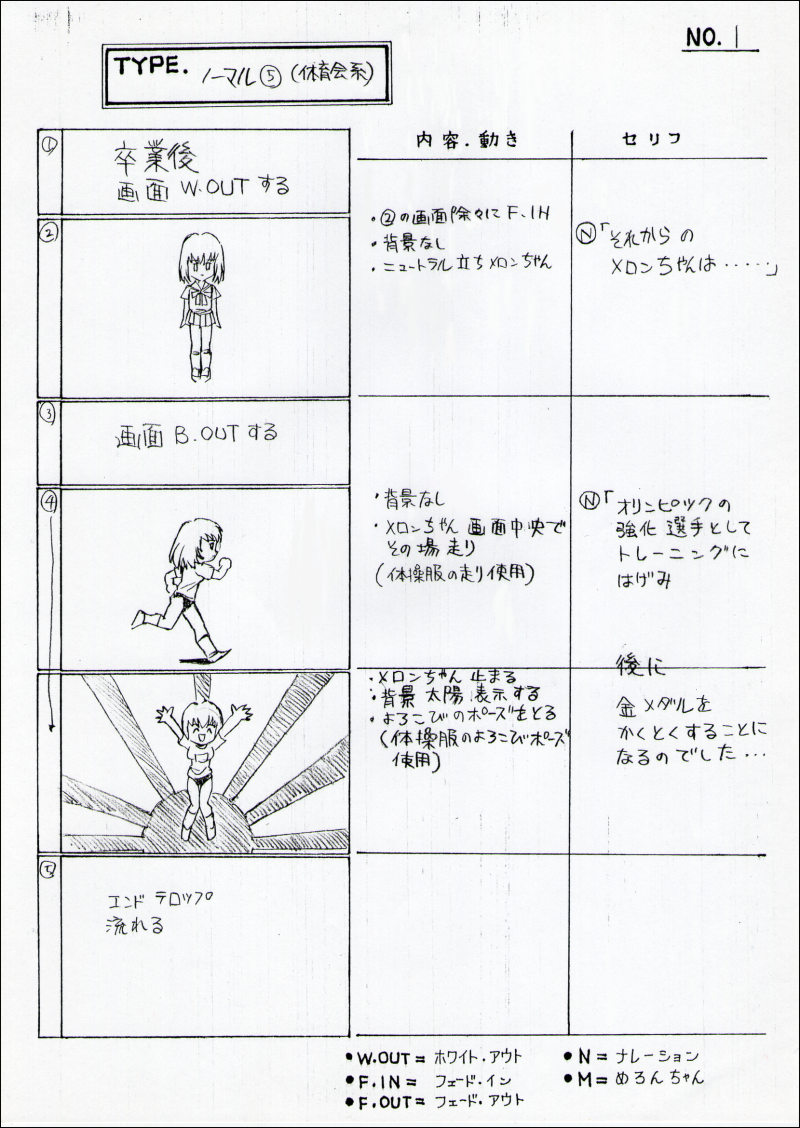 NO. 1
TYPE. ノーマル⑤(体育会系)
内容.動き
セリフ
①
卒業後
画面 W.OUT する
②
・②の画面除々にF.IN
・背景なし
・ニュートラル立ちメロンちゃん
Ⓝ「それからの
メロンちゃんは・・・・・」
③
画面 B.OUTする
④
・背景なし
・メロンちゃん 画面中央で
その場走り
(体操服の走り使用)
Ⓝ「オリンピックの
強化選手として
トレーニングに
はげみ
後に
金メダルを
かくとくすることに
なるのでした・・・
・メロンちゃん 止まる
・背景 太陽 表示する
・よろこびのポーズをとる
(体操服のよろこびポーズ
使用)
⑤
エンド テロップ
流れる
●W.OUT= ホワイト.アウト
●F.IN= フェード.イン
●F.OUT= フェード.アウト
●N= ナレーション
●M= めろんちゃん